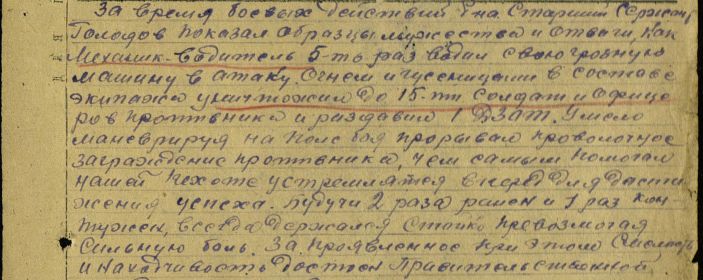 За время боевых действий Гв. Старший Сержан
Голодов показал образцы мужества и отваги. Как
Механик-водитель 5-ть раз водил свою грозную
машину в атаку. Огнем и гусеницами в составе
экипажа уничтожил до 15-ти солдат и офице
ров противника и раздавил 1 ДЗОТ. Умело
маневрируя на поле боя прорывал проволочное
заграждение противника, чем самым помогал
нашей пехоте устремлятся вперед для дости
жения успеха. Будучи 2 раза ранен и 1 раз кон-
тужен, всегда держался стойко превозмогая
сильную боль. За проявленное при этом смелость
и находчивость достоен Правительственной